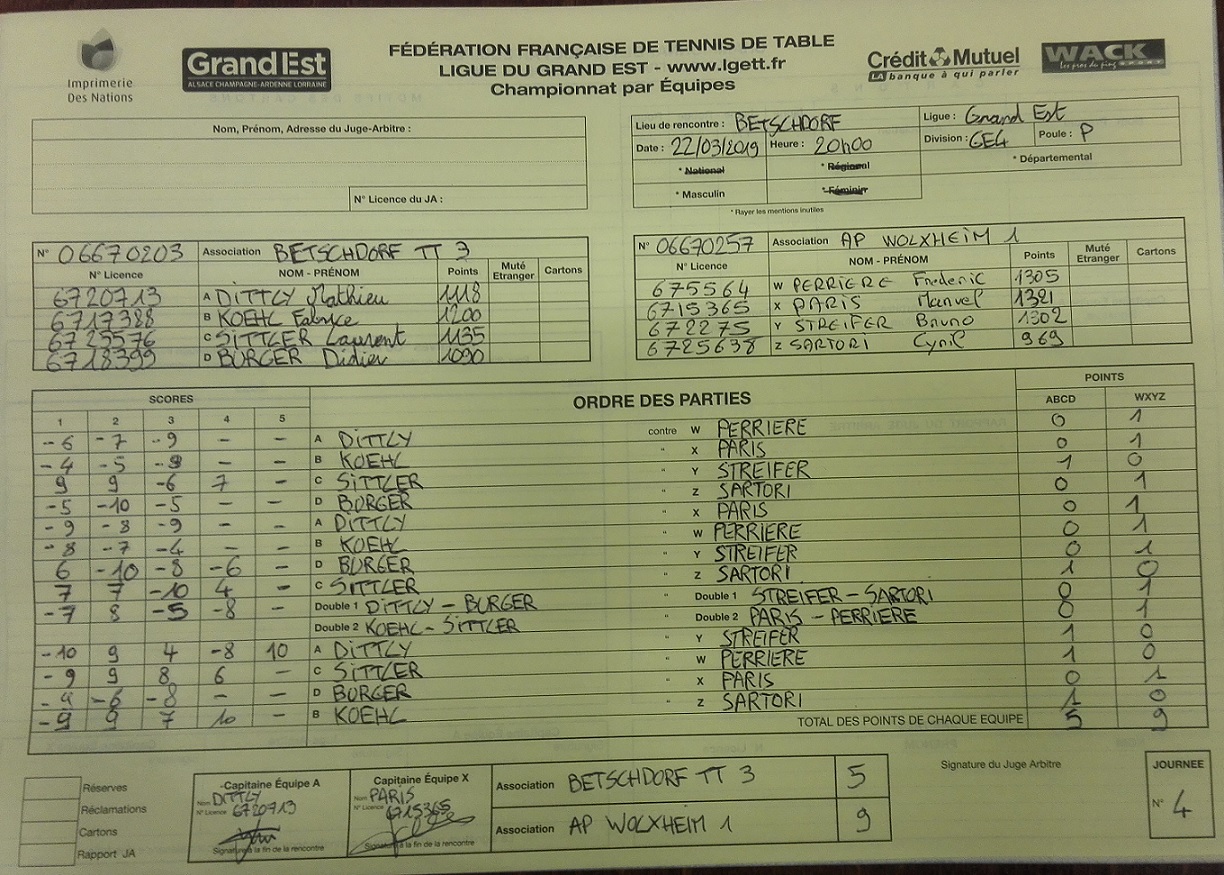 Imprimerie
Des Nations
Grand Est
ALSACE CHAMPAGNE-ARDENNE LORRAINE
FÉDÉRATION FRANÇAISE DE TENNIS DE TABLE
LIGUE DU GRAND EST - www.lgett.fr
Championnat par Équipes
Crédit Mutuel
LA banque à qui parler
WACK
les pros du ping SPORT
Nom, Prénom, Adresse du Juge-Arbitre :
N° Licence du JA :
Lieu de rencontre : BETSCHDORF Ligue : Grand Est
Date : 22/03/2019 Heure : 20h00 Division : GE4 Poule : P
* National * Régional * Départemental
* Masculin * Féminin
* Rayer les mentions inutiles
N° 06670203 Association BETSCHDORF TT 3
N° Licence NOM - PRÉNOM Points Muté Etranger Cartons
6720713 A DITTLY Mathieu 1118
6717388 B KOEHL Fabrice 1200
6725576 C SITTLER Laurent 1135
6718399 D BURGER Didier 1090
N° 06670257 Association AP WOLXHEIM 1
N° Licence NOM - PRÉNOM Points Muté Etranger Cartons
675564 W PERRIERE Frederic 1305
6715365 X PARIS Manuel 1321
672275 Y STREIFER Bruno 1302
6725638 Z SARTORI Cyril 969
SCORES ORDRE DES PARTIES POINTS
1 2 3 4 5 ABCD WXYZ
-6 -7 -9 - - A DITTLY contre W PERRIERE 0 1
-4 -5 -9 - - B KOEHL " X PARIS 0 1
9 9 -6 7 - C SITTLER " Y STREIFER 1 0
-5 -10 -5 - - D BURGER " Z SARTORI 0 1
-9 -8 -9 - - A DITTLY " X PARIS 0 1
-8 -7 -4 - - B KOEHL " W PERRIERE 0 1
6 -10 -8 -6 - D BURGER " Y STREIFER 0 1
7 7 -10 4 - C SITTLER " Z SARTORI 1 0
-7 8 -5 -8 - Double 1 DITTLY - BURGER " Double 1 STREIFER - SARTORI 0 1
Double 2 KOEHL - SITTLER " Double 2 PARIS - PERRIERE 0 1
-10 9 4 -8 10 A DITTLY " Y STREIFER 1 0
-9 9 8 6 - C SITTLER " W PERRIERE 1 0
-6 -8 - - D BURGER " X PARIS 0 1
-9 9 7 10 - B KOEHL " Z SARTORI 1 0
TOTAL DES POINTS DE CHAQUE EQUIPE 5 9
Réserves
Réclamations
Cartons
Rapport JA
Capitaine Équipe A
Nom DITTLY
N° Licence 6720713
Signature à la fin de la rencontre
Capitaine Équipe X
Nom PARIS
N° Licence 6715365
Signature à la fin de la rencontre
Association BETSCHDORF TT 3 5
Association AP WOLXHEIM 1 9
Signature du Juge Arbitre
JOURNEE
N° 4